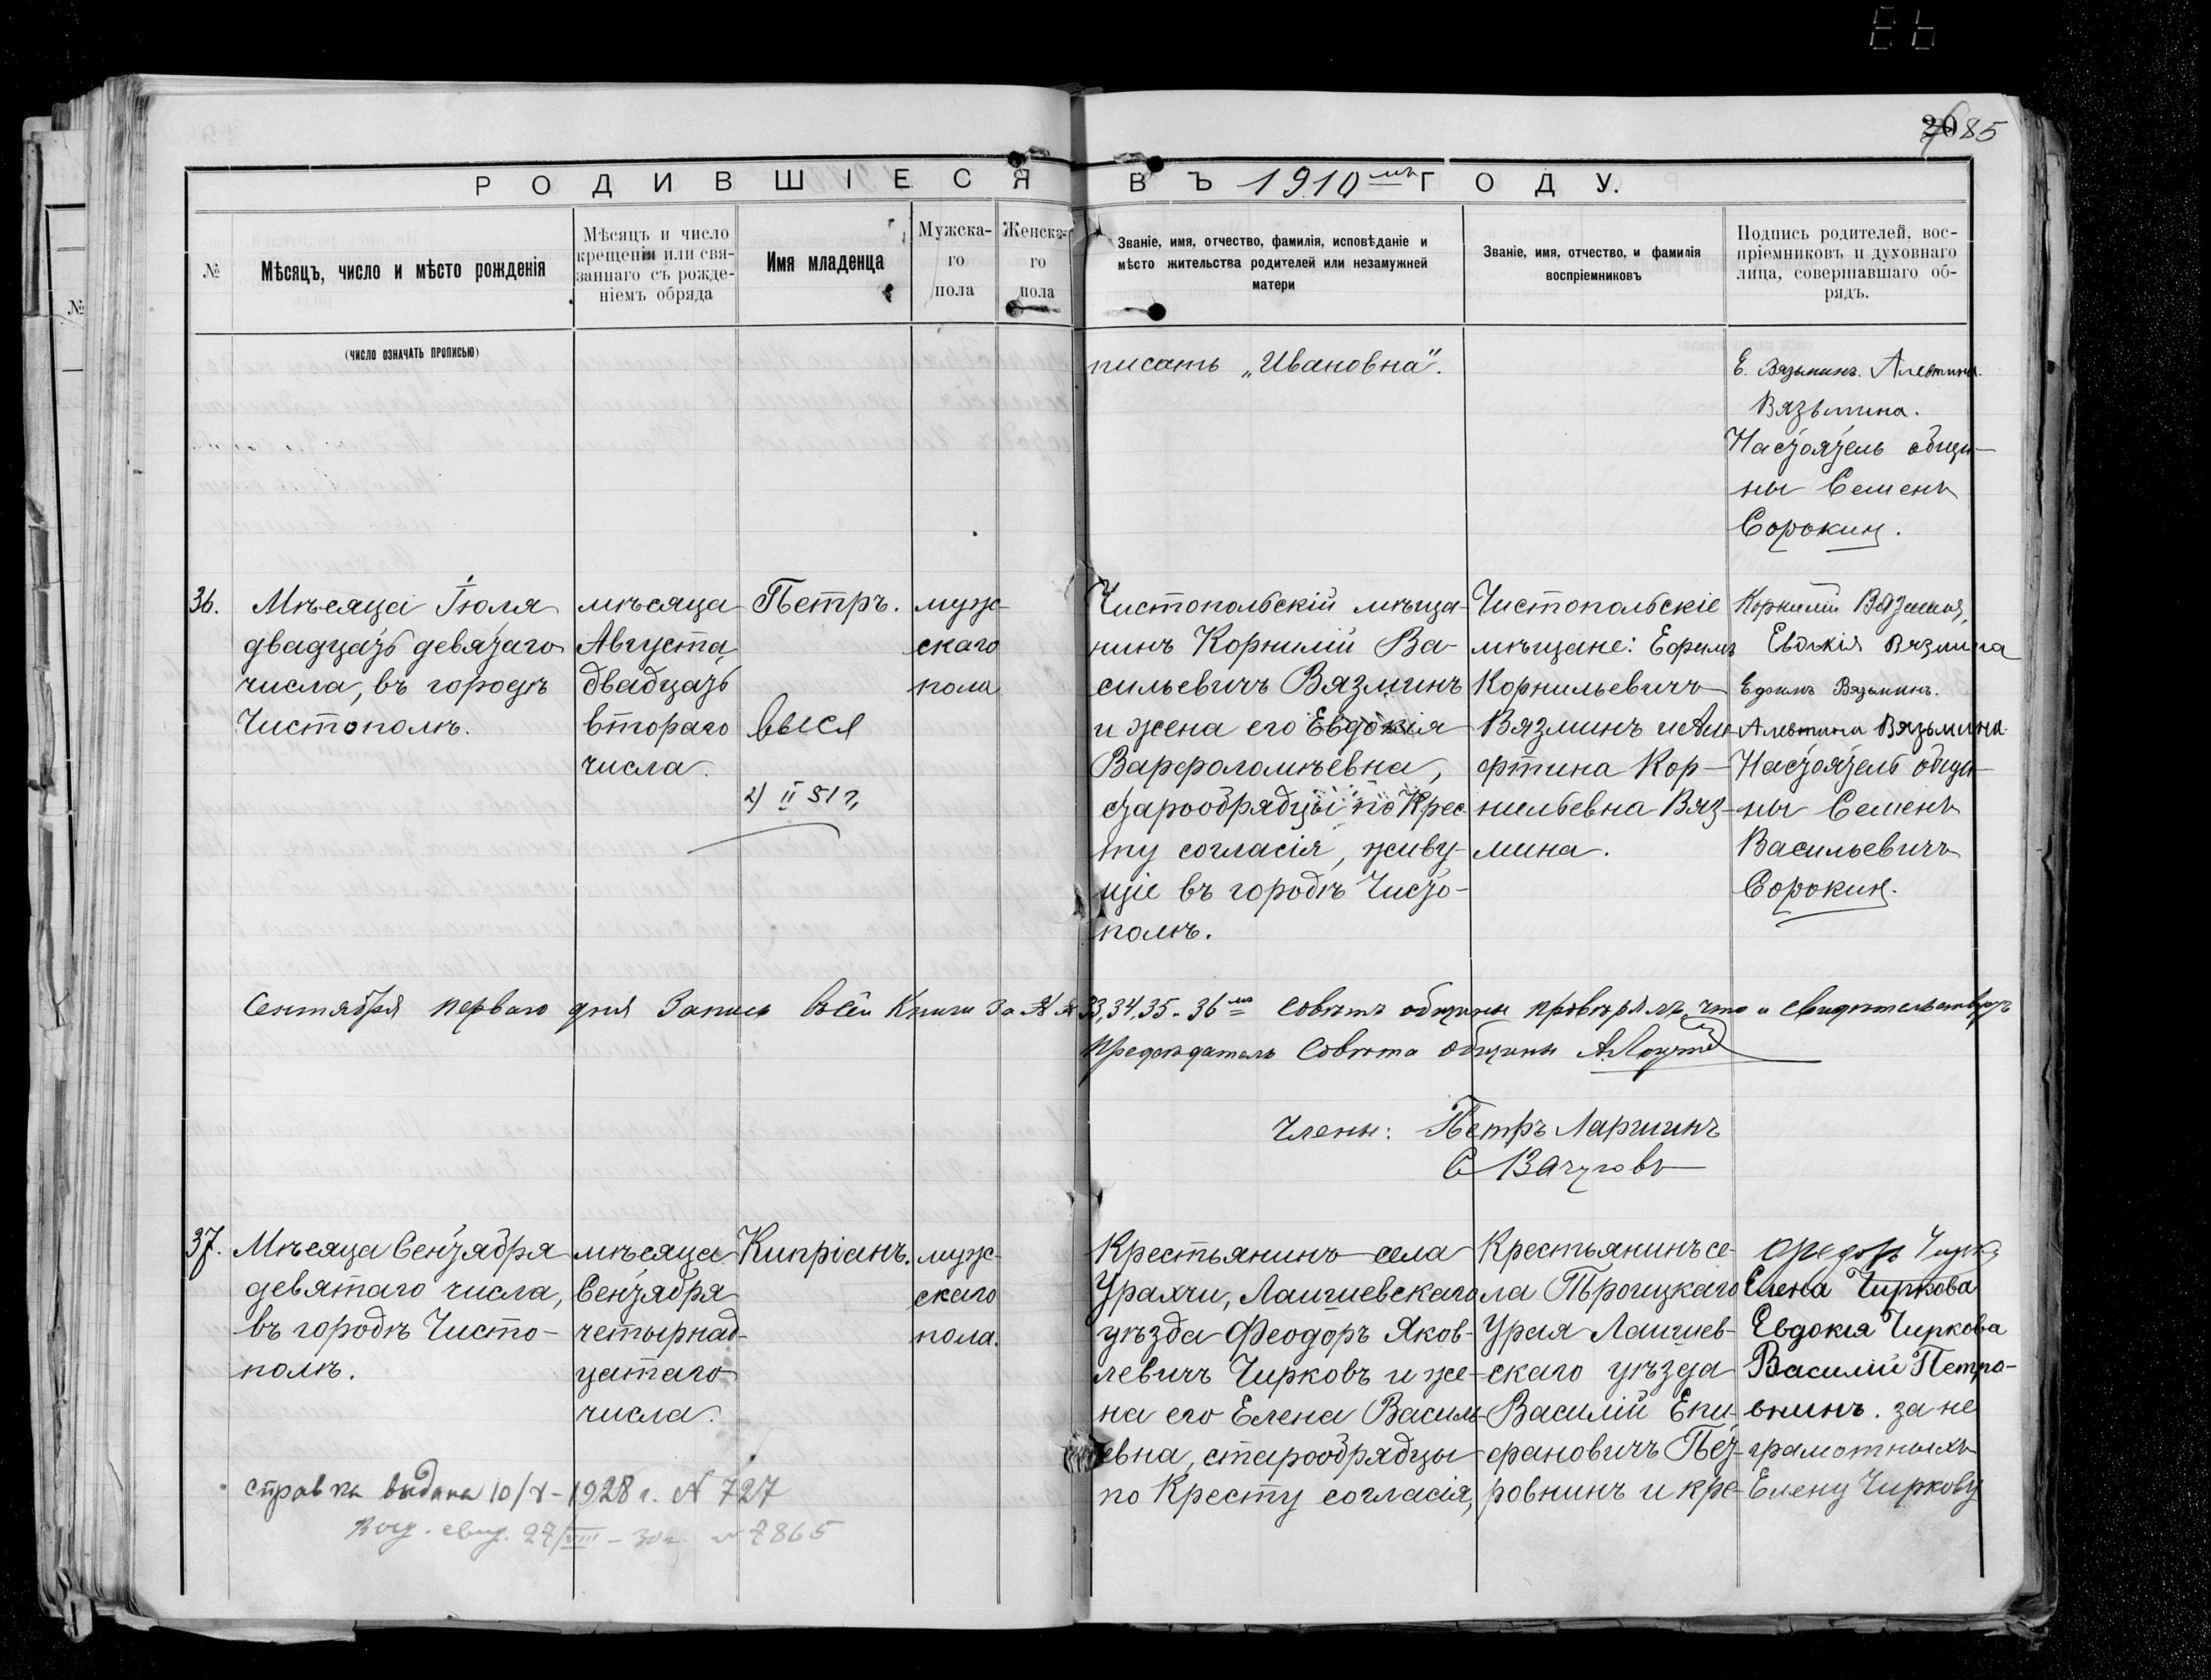 85
РОДИВШІЕСЯ ВЪ 1910мъ ГОДУ.
№
Мѣсяцъ, число и мѣсто рожденія
Мѣсяцъ и число
крещенія или свя-
заннаго съ рожде-
ніемъ обряда
Имя младенца
Мужска-
го
пола
Женска-
го
пола
Званіе, имя, отчество, фамилія, исповѣданіе и
мѣсто жительства родителей или незамужней
матери
Званіе, имя, отчество, и фамилія
воспріемниковъ
Подпись родителей, вос-
пріемниковъ и духовнаго
лица, совершавшаго об-
рядъ.
№
(число означать прописью)
писать „Ивановна".
Е. Вязьминъ. Алевтина
Вязьмина.
Настоятель общи-
ны Семенъ
Сорокин.
36.
Мѣсяца Іюля
двадцать девятаго
числа, въ городѣ
Чистополѣ.
мѣсяца
Августа
двадцать
втораго
числа.
Петръ.
2) II 51 г.
муж-
скаго
пола
Чистопольскій мѣща-
нинъ Корнилій Ва-
сильевичъ Вязминъ
и жена его Евдокія
Варфоломѣевна,
старообрядцы по Крес-
ту согласія, живу-
щіе въ городѣ Чисто-
полѣ.
Чистопольскіе
мѣщане: Ефимъ
Корнильевичъ
Вязминъ и Але-
фтина Кор-
нильевна Вяз-
мина.
Корнилій
Евдокія Вязмина
Ефимъ Вязьминъ.
Алевтина Вязьмина
Настоятель общи-
ны Семенъ
Васильевичъ
Сорокин.
Сентября перваго дня Запись сей Книги за № № 33, 34, 35. 36мъ Совѣтъ общины провѣрялъ, что и свидѣтельствуетъ
Предсѣдатель Совѣта общины
Члены: Петръ Ларшинъ
С Вачуговъ
37.
Мѣсяца Сентября
девятаго числа,
въ городѣ Чисто-
полѣ.
мѣсяца
Сентября
четырнад-
цатаго
числа.
Кипріанъ.
муж-
скаго
пола.
Крестьянинъ села
Урахчи, Лаишевскаго
уѣзда Феодоръ Яков-
левичъ Чирковъ и же-
на его Елена Василь-
евна, старообрядцы
по Кресту согласія,
Крестьянинъ се-
ла Троицкаго
Урая Лаишев-
скаго уѣзда
Василій Епи-
фановичъ Пет-
ровнинъ и кре-
Федоръ
Елена Чиркова
Евдокія Чиркова
Василій Петро-
внинъ. за не
грамотныхъ
Елену Чиркову
справка выдана 10/X-1928 г. № 727
свид. 27/VIII - 30 г. № 7865